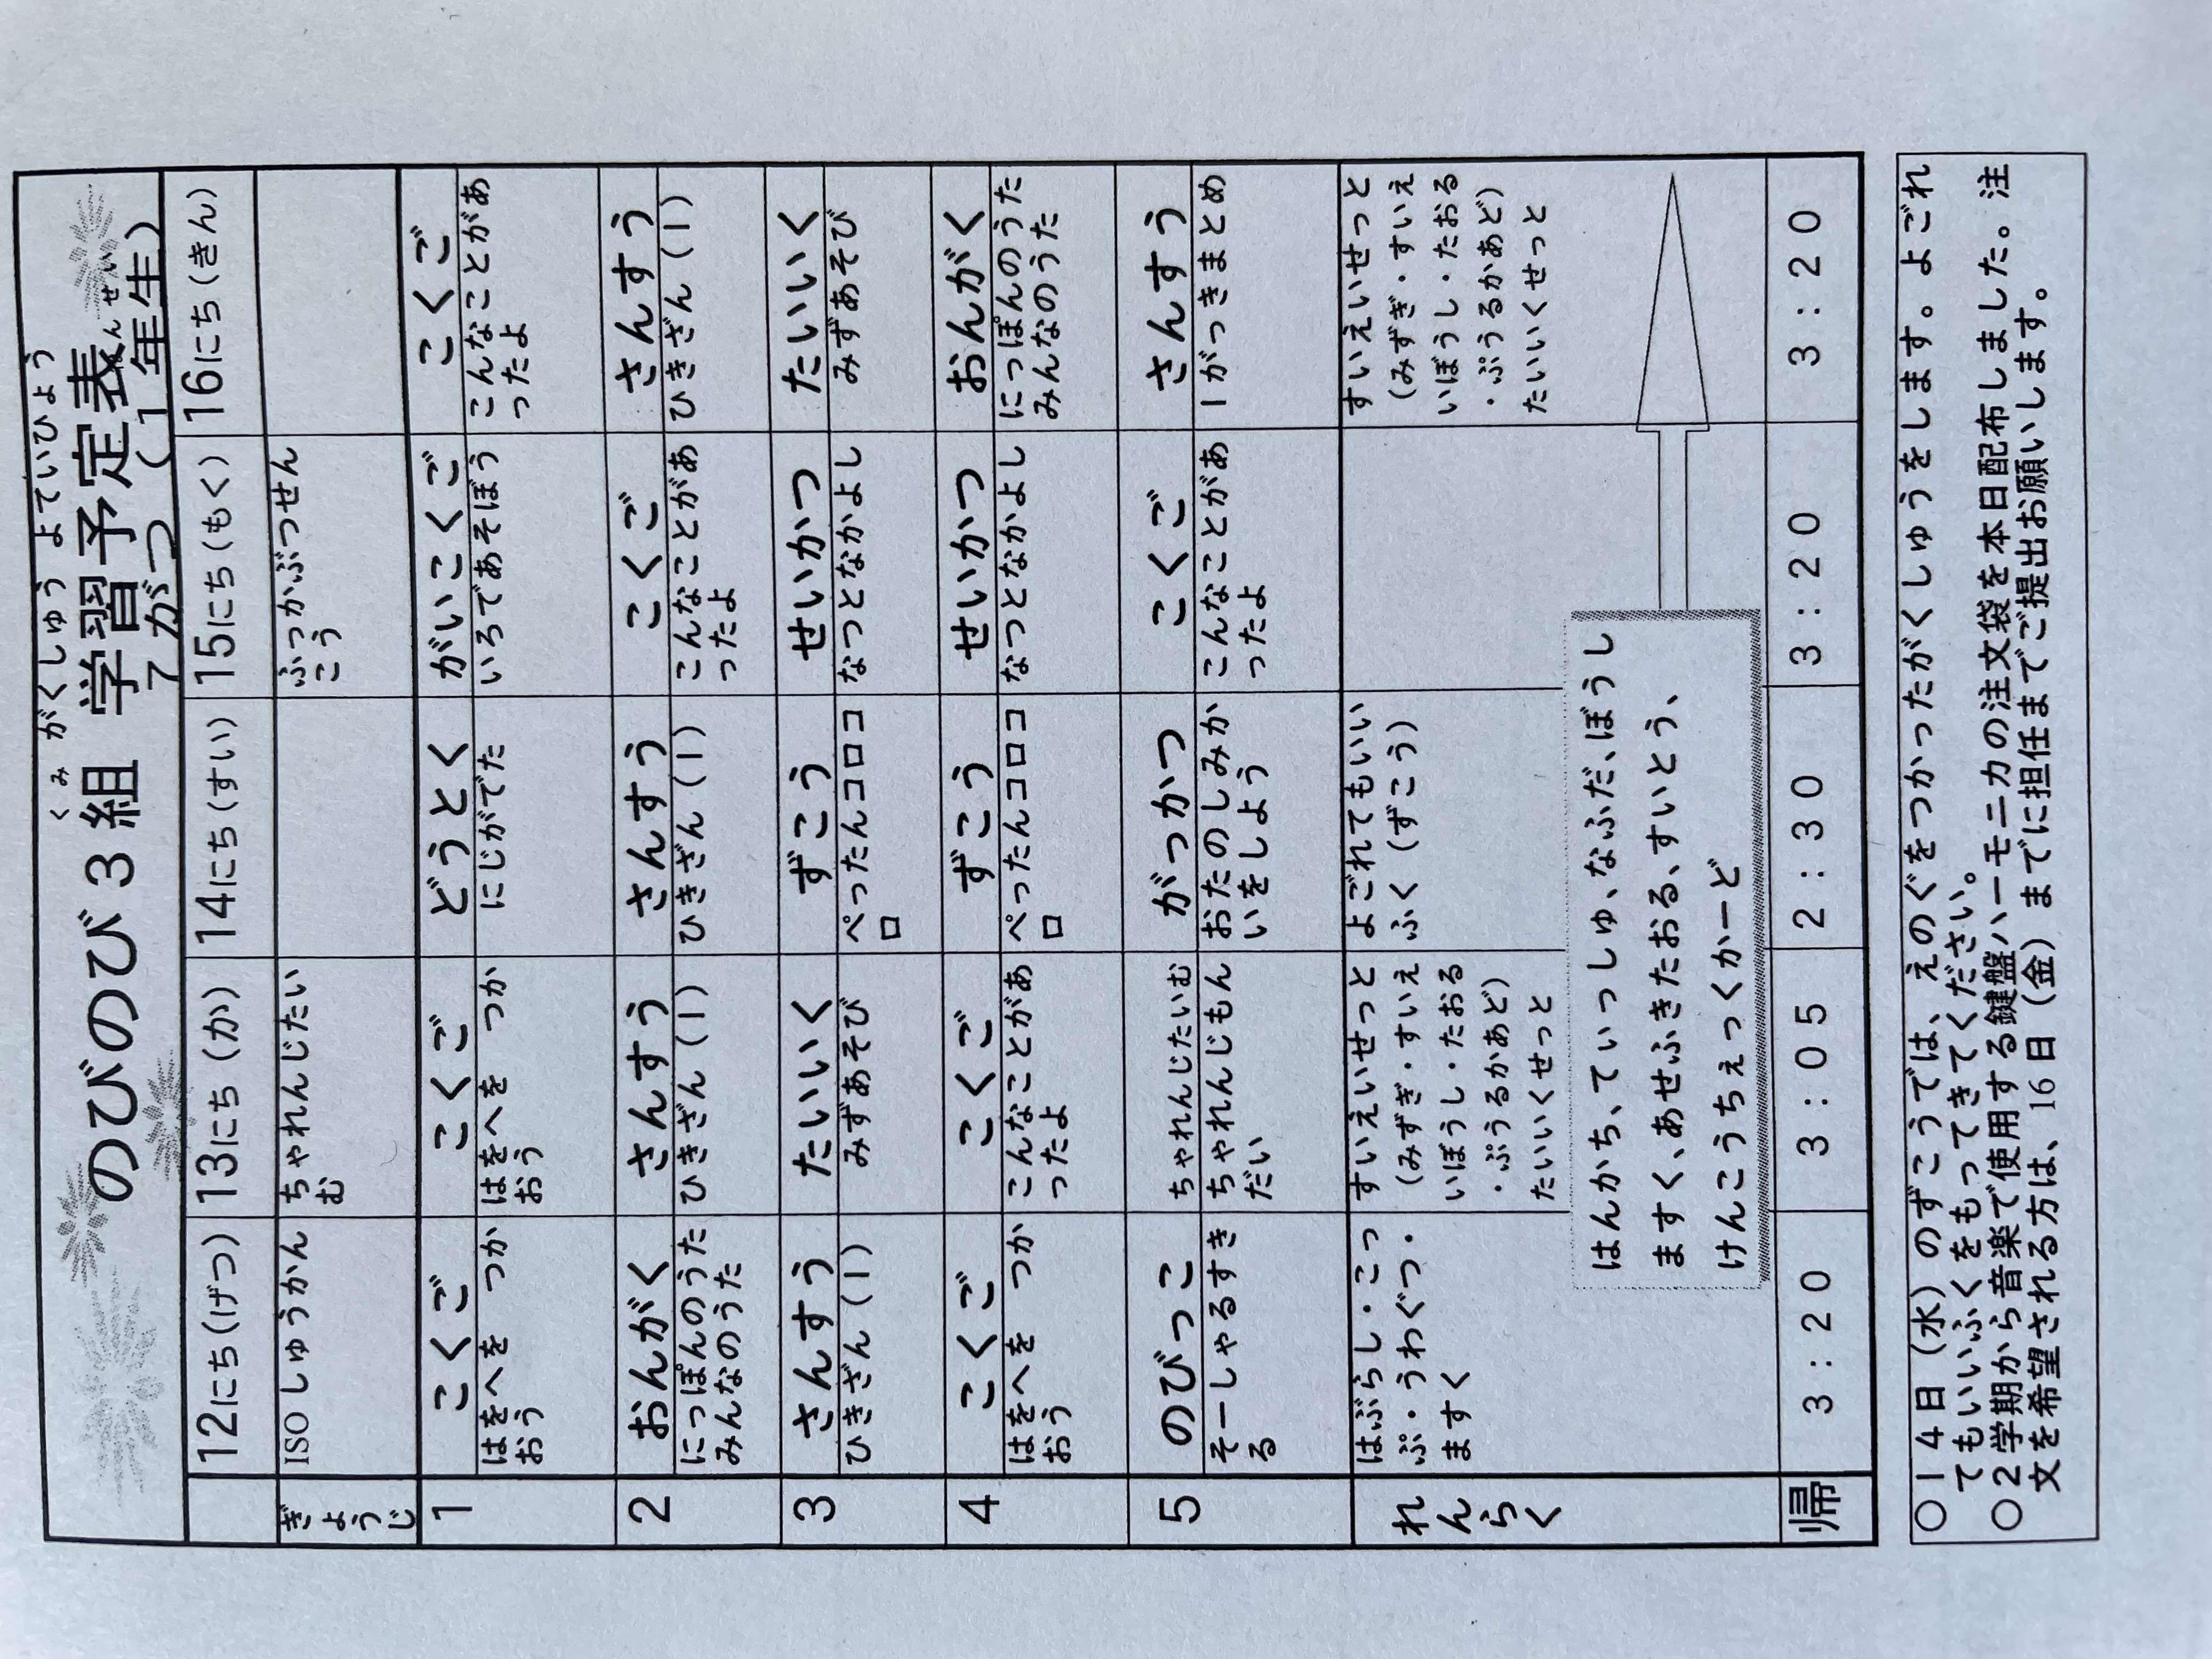 くみ がくしゅう よていひょう
のびのび３組 学習予定表
７がつ （１年生）
12にち(げつ) 13にち (か) 14にち (すい) 15にち (もく) 16にち (きん)
ぎょうじ
ISO しゅうかん
ちゃれんじたい
む
ふっかぶつせん
こう
1
こくご
はをへを つか
おう
こくご
はをへを つか
おう
どうとく
にじがでた
がいこくご
いろであそぼう
こくご
こんなことがあ
ったよ
2
おんがく
にっぽんのうた
みんなのうた
さんすう
ひきざん (1)
さんすう
ひきざん (1)
こくご
こんなことがあ
ったよ
さんすう
ひきざん (1)
3
さんすう
ひきざん (1)
たいいく
みずあそび
ずこう
ぺったんコロコ
ロ
せいかつ
なつとなかよし
たいいく
みずあそび
4
こくご
はをへを つか
おう
こくご
こんなことがあ
ったよ
ずこう
ぺったんコロコ
ロ
せいかつ
なつとなかよし
おんがく
にっぽんのうた
みんなのうた
5
のびっこ
そーしゃるすき
る
ちゃれんじたいむ
ちゃれんじもん
だい
がっかつ
おたのしみか
いをしよう
こくご
こんなことがあ
ったよ
さんすう
1がっきまとめ
れんらく
はぶらし・こっ
ぷ・うわぐつ・
ますく
すいえいせっと
(みずぎ・すいえ
いぼうし・たおる
・ぷうるかあど)
たいいくせっと
よごれてもいい
ふく (ずこう)
すいえいせっと
(みずぎ・すいえ
いぼうし・たおる
・ぷうるかあど)
たいいくせっと
はんかち、てぃっしゅ、なふだ、ぼうし
ますく、あせふきたおる、すいとう、
けんこうちぇっくかーど
帰 3:20 3:05 2:30 3:20 3:20
○１４日（水）のずこうでは、えのぐをつかったがくしゅうをします。よごれ
てもいいふくをもってきてください。
○２学期から音楽で使用する鍵盤ハーモニカの注文袋を本日配布しました。注
文を希望される方は、16日（金）までに担任までご提出お願いします。